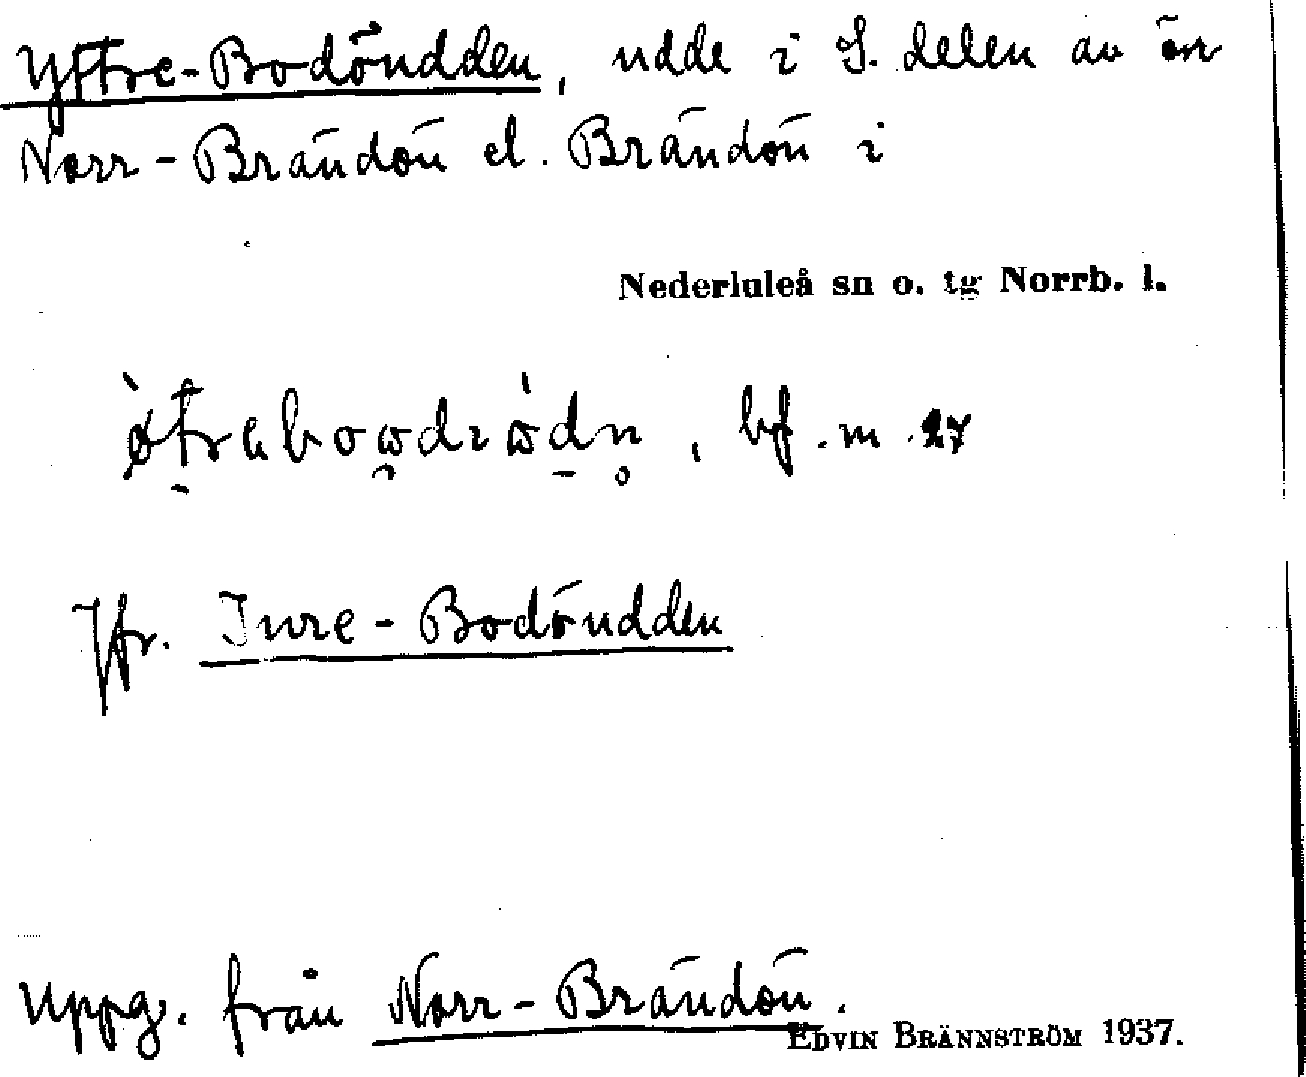 Yttre-Bodöudden, udde i S. delen av ön
Norr-Brändön el. Brändön i
Nederluleå sn o. tg Norrb. l.
, bf. m. 27
Jfr. Inre-Bodöudden
Uppg. från Norr-Brändön.
EDVIN BRÄNNSTRÖM 1937.